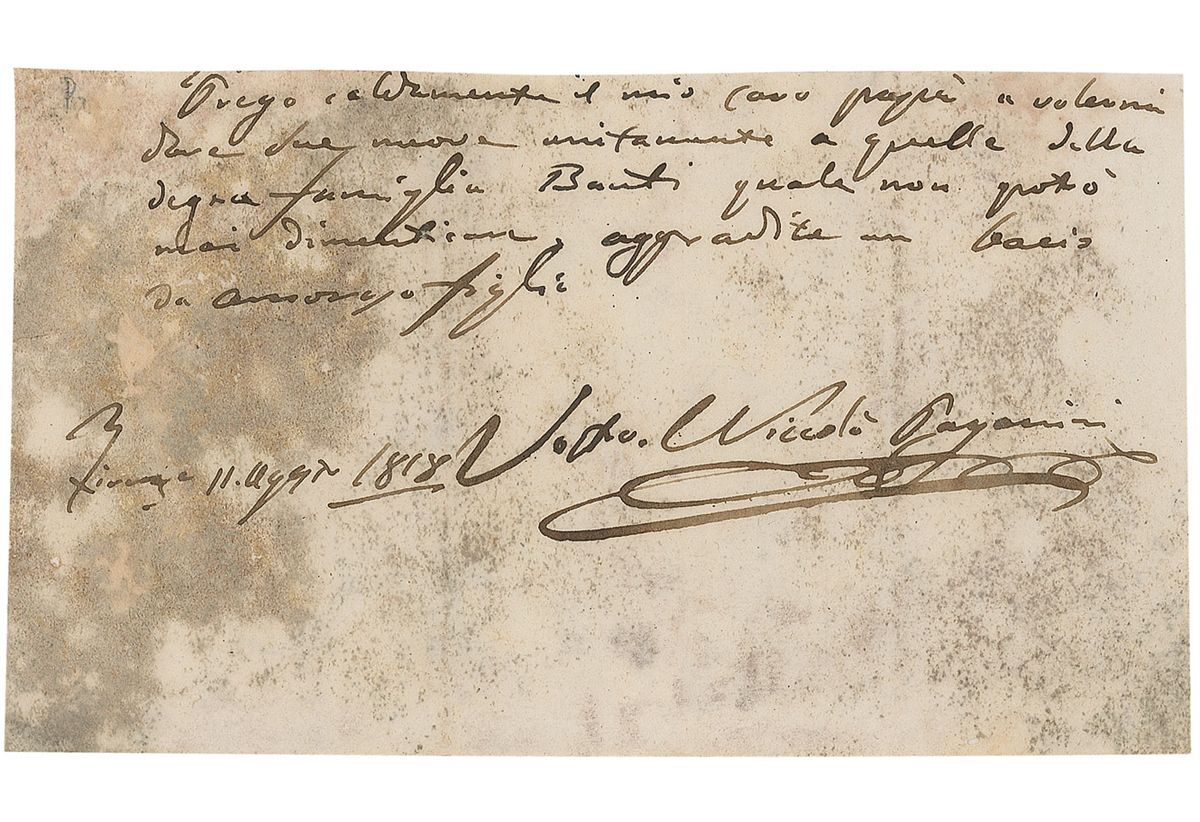 Prego caldamente il mio caro papà a volermi
dare sue nuove unitamente a quelle della
degna famiglia Banti quale non potrò
mai dimenticare, aggradite un bacio
da amoroso figlio
Firenze 11. Aggto 1818 Vostro. Niccolò Paganini